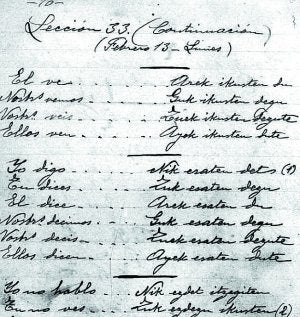 -10-
Lección 33. (Continuación)
(Febrero 13 - Lunes)
El ve .. .. .. Arek ikusten du
Nostrs vemos .. .. Guk ikusten degu
Vostrs veis .. .. Zuek ikusten degute
Ellos ven .. .. .. Ayek ikusten dute
Yo digo .. .. .. Nik esaten det (1)
Tu dices .. .. .. Zuk esaten dezu
El dice .. .. .. Arek esaten du
Nostrs decimos .. .. Guk esaten degu
Vostrs decis .. .. Zuek esaten dezute
Ellos dicen .. .. Ayek esaten dute
Yo no hablo .. .. Nik ezdet itzegiten
Tu no ves .. .. Zuk ezdezu ikusten (2)